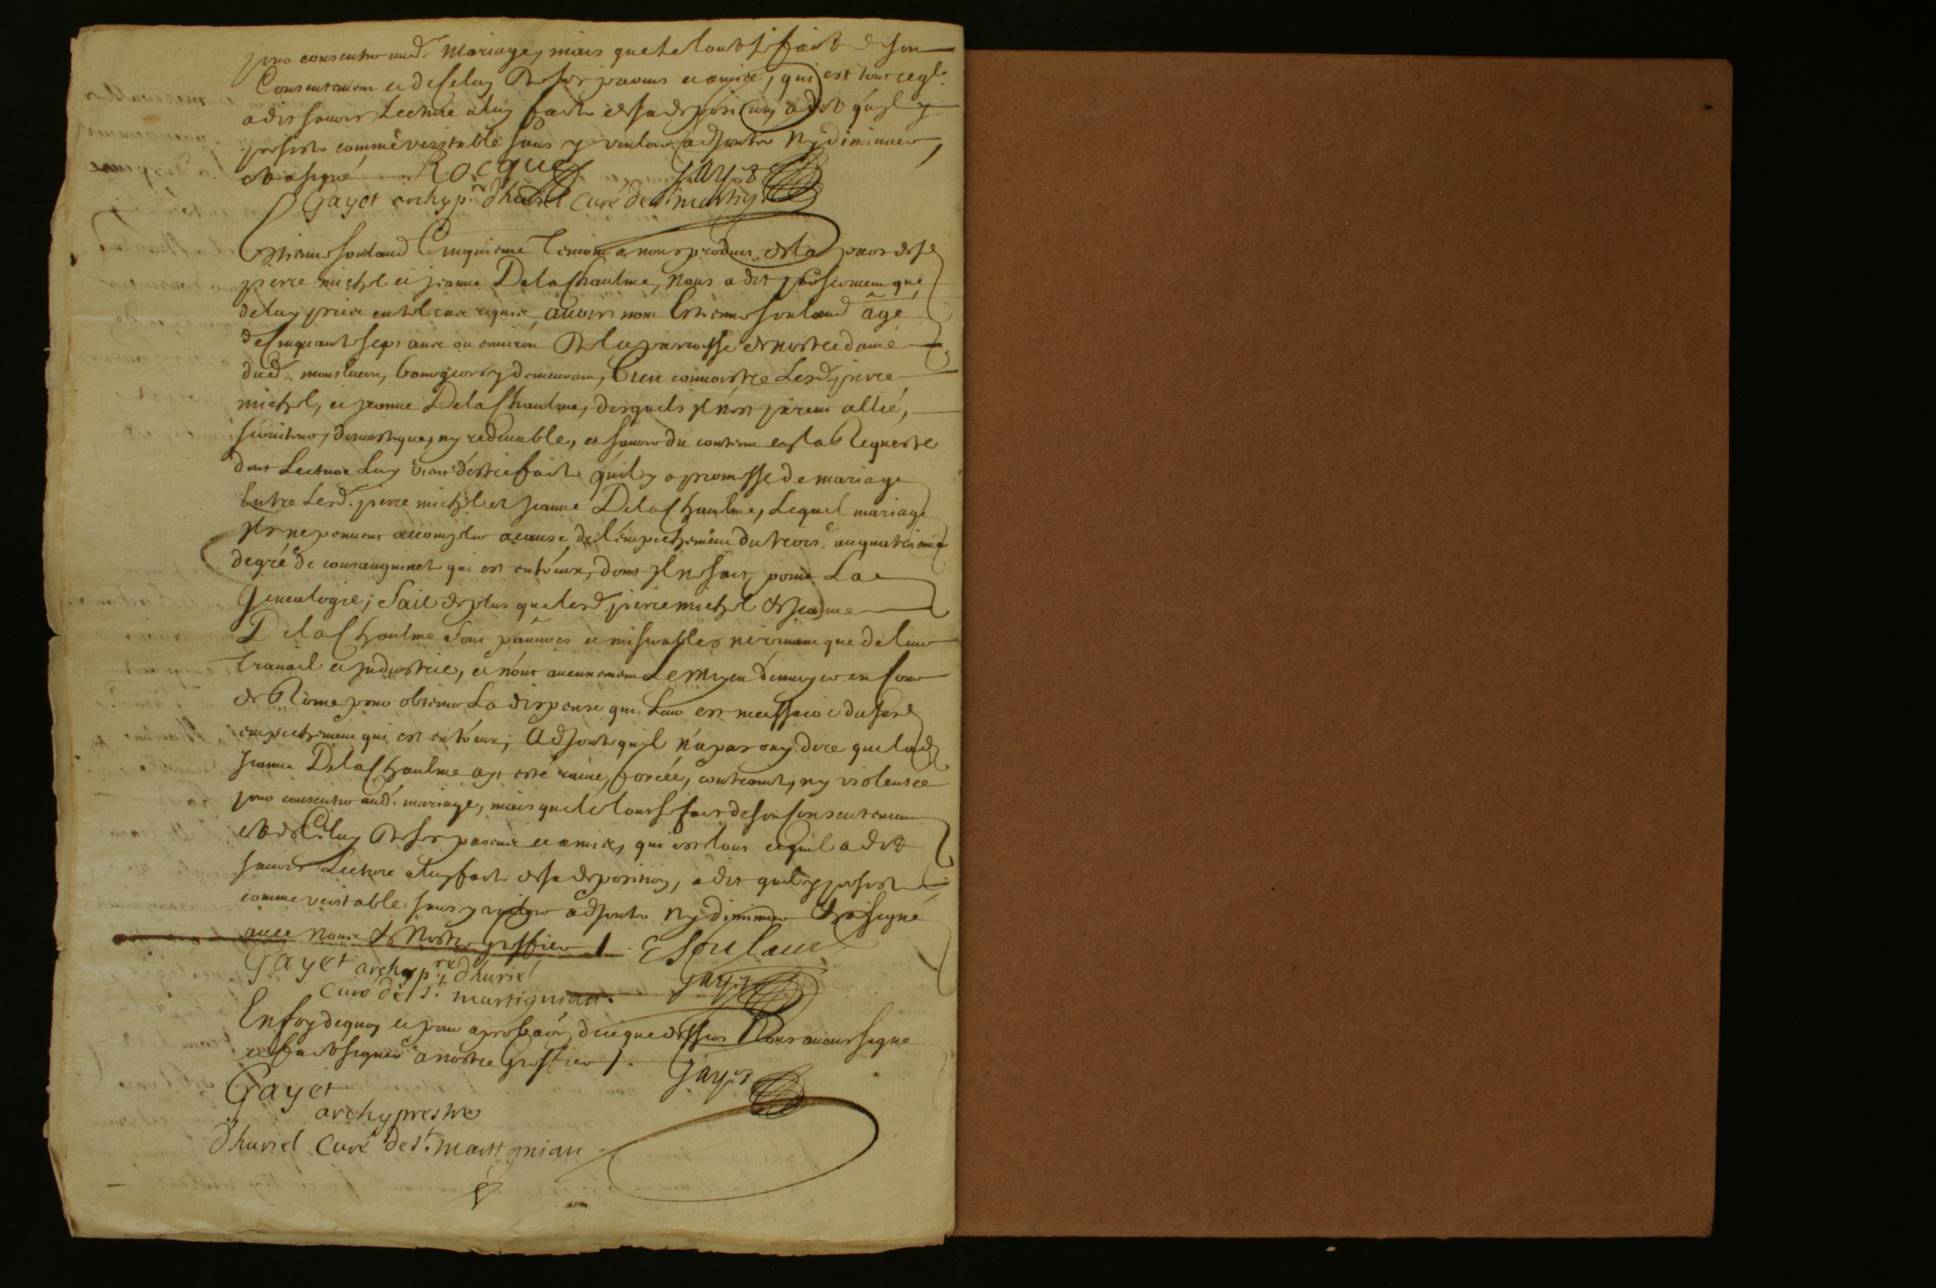 pour consentir aud. mariage, mais que le tout se fait de son
Consentement et de celuy de ses parens et amis, qui est tout ce qlz
a dit scavoir Lecture a luy faite de sa deposition a dit qu'il y
persiste comme veritable sans y vouloir adjouter ny diminuer,
et a signé Rocque Gayet
Gayet archyp.re d'huriel curé de st. martig.
Estienne Soulaud Cinquieme Temoin a nous produit de la part desd.
pierre michel et jeanne Delachaulme, Nous a dit
avoir nom Estienne Soulaud âgé
de cinquante sept ans ou environ de la parroisse de nostre dame
dud. monluçon, bourgeois y demeurant, bien connoistre Lesd. pierre
michel, et jeanne Delachaulme, desquels il n'est parent allié,
serviteur, domestique, ny redevable, et scavoir du contenu en la Requeste
dont Lecture Luy vient d'estre faite qu'il y a promesse de mariage
Entre Lesd. pierre michel et jeanne Delachaulme, Lequel mariage
ils ne peuvent accomplir a cause de l'empechement du trois.e au quatrieme
degré de consanguinité qui est entr'eux, dont il ne sait point La
Genealogie; Sait de plus que lesd. pierre michel et jeanne
Delachaulme sont pauvres et miserables ne vivant que de leur
travail et industrie, et n'ont aucunement Le moyen d'envoyer en Cour
de Rome pour obtenir La dispense qui Leur est necessaire dud.
empechement qui est entr'eux; Adjoute qu'il n'a pas ouy dire que lad.
Jeanne Delachaulme ayt esté ravie, forcée, contrainte, ny violentée
pour consentir aud. mariage, mais que le tout se fait de son consentement
et de Celuy de ses parens et amis, qui est tout ce qu'il a dit
scavoir Lecture a luy faite de sa deposition, a dit qu'il y persiste
comme veritable sans y vouloir adjouter ny diminuer et a signé
avec nous et Nostre greffier /. E Soulaud
Gayet archyp.re d'huriel
curé de st. martignian. Gayet
En foy de quoy et pour aprobaõn de ce que dessus Nous avons signé
et fait signer a nostre greffier /. Gayet
Gayet
archyprestre
d'huriel curé de st. martignian